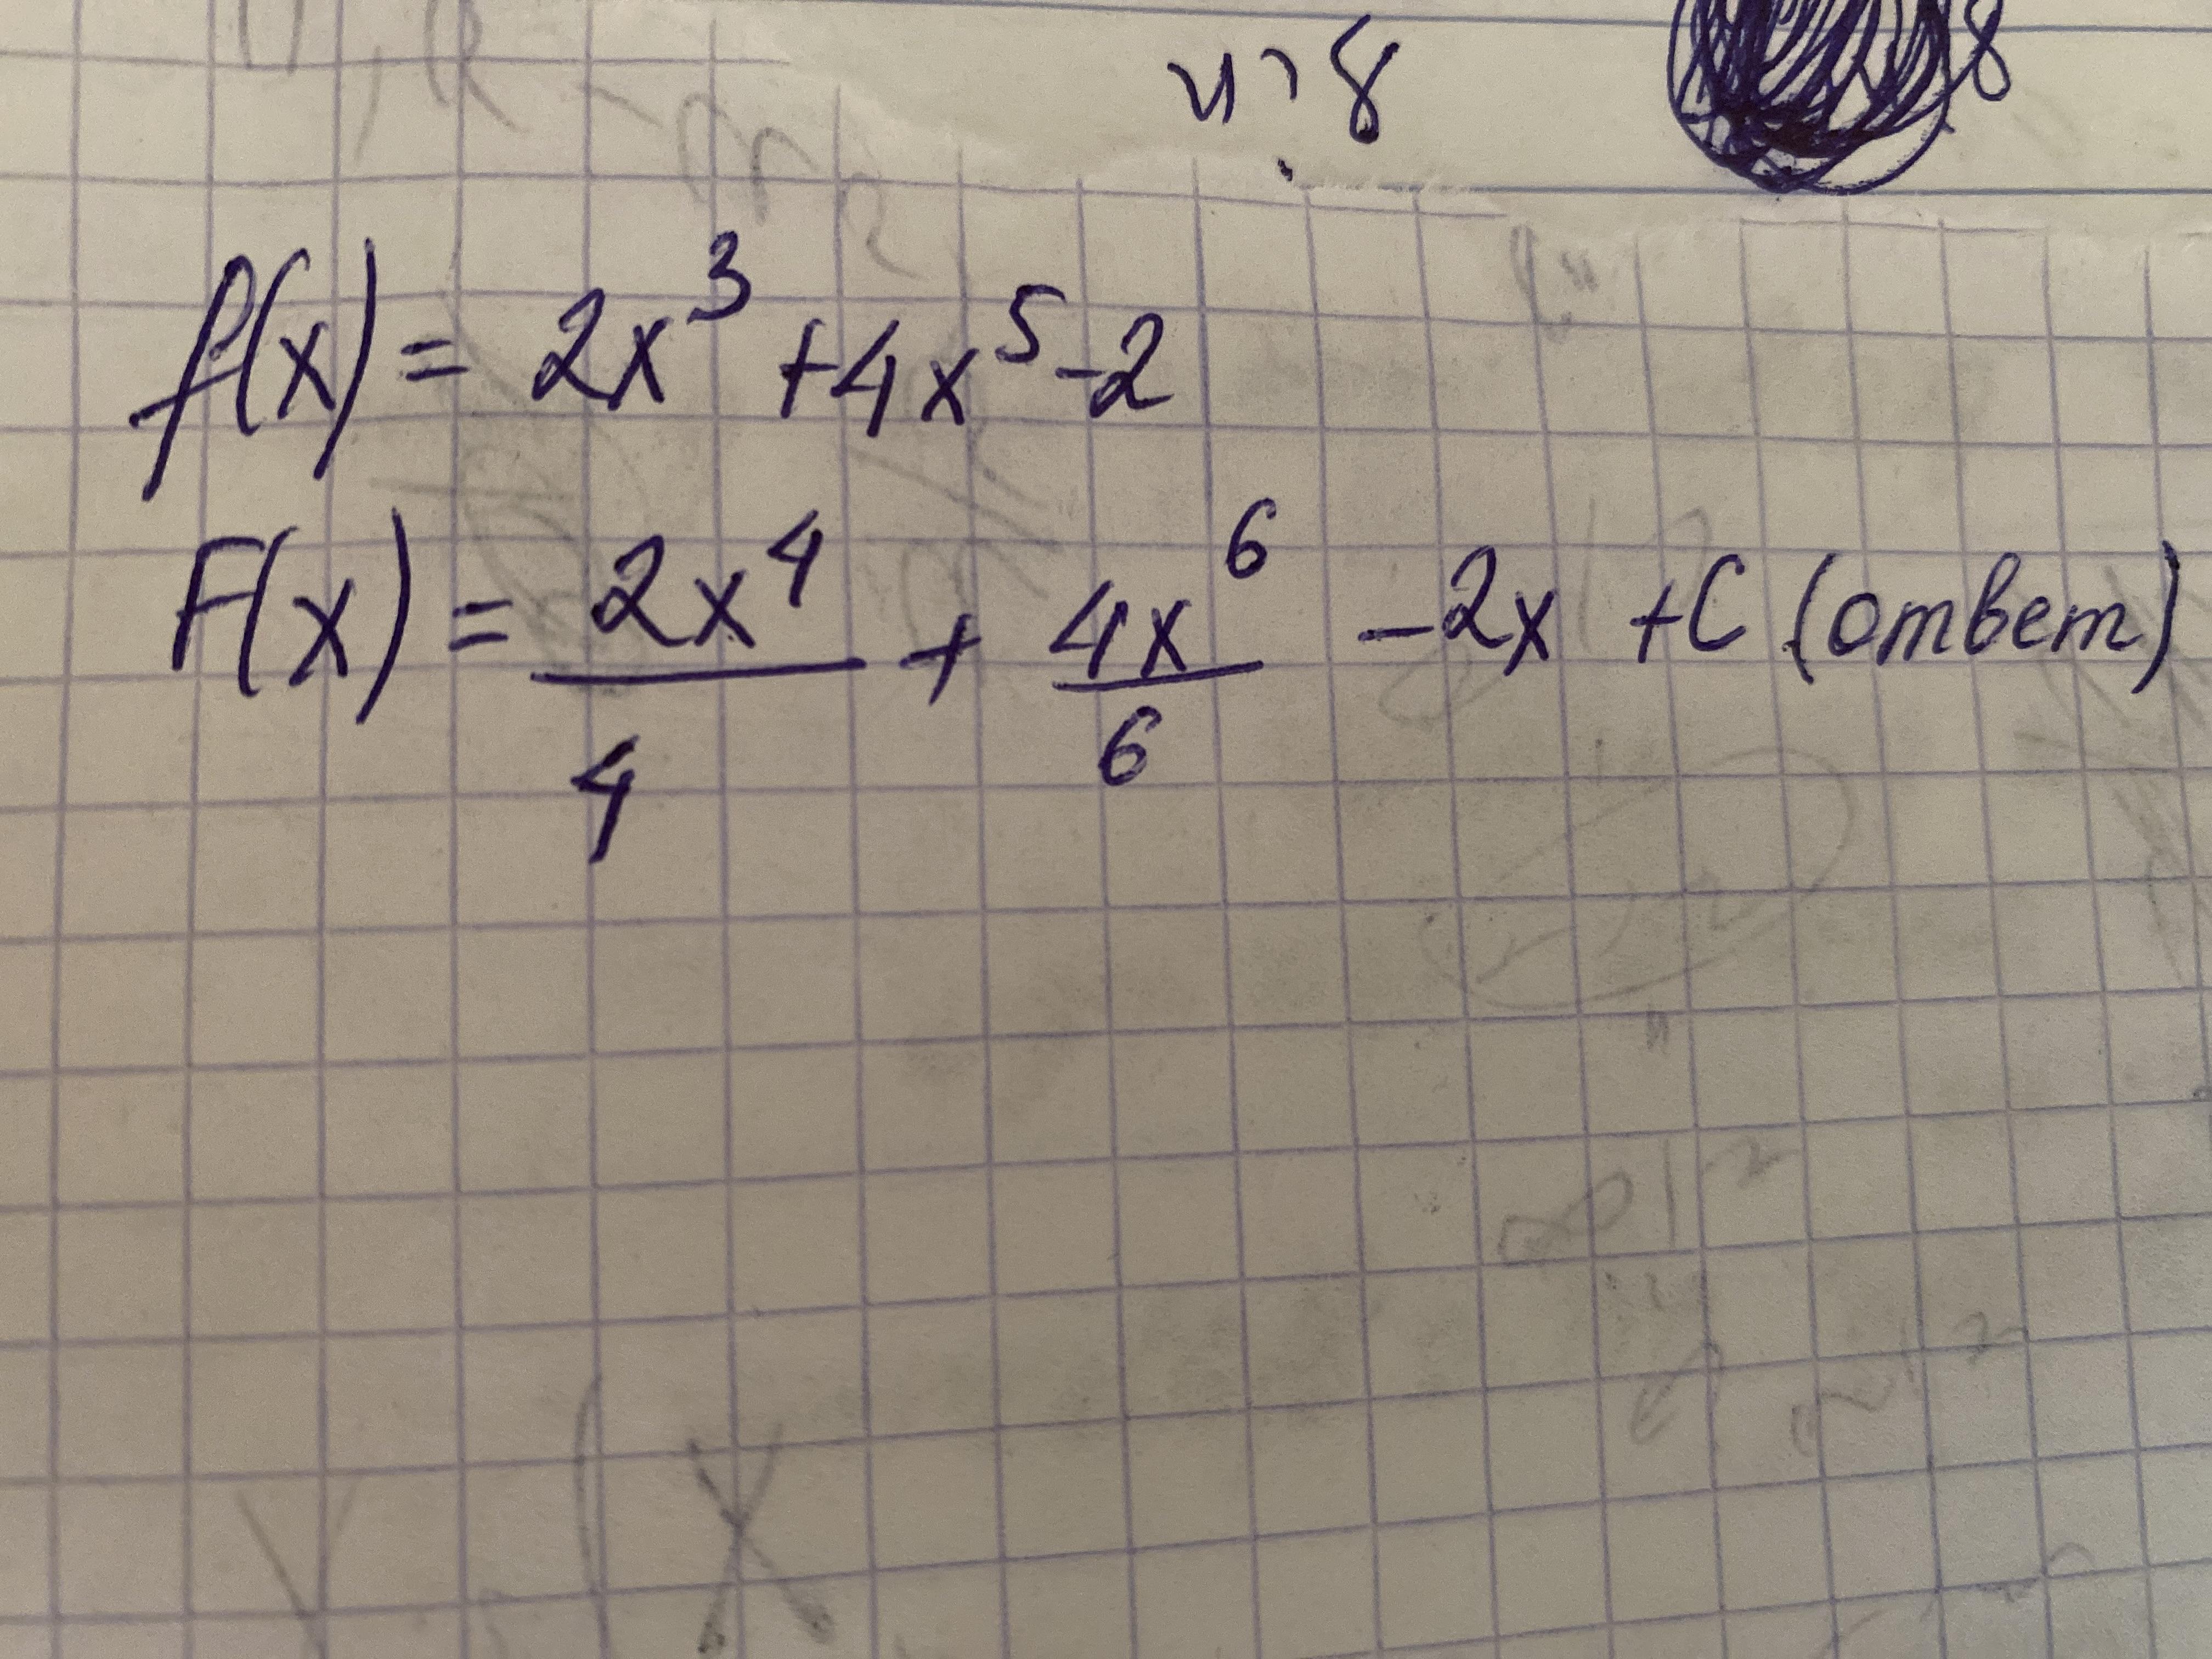 f(x) = 2x³ + 4x⁵ - 2
F(x) = 2x⁴/4 + 4x⁶/6 - 2x + C (ответ)